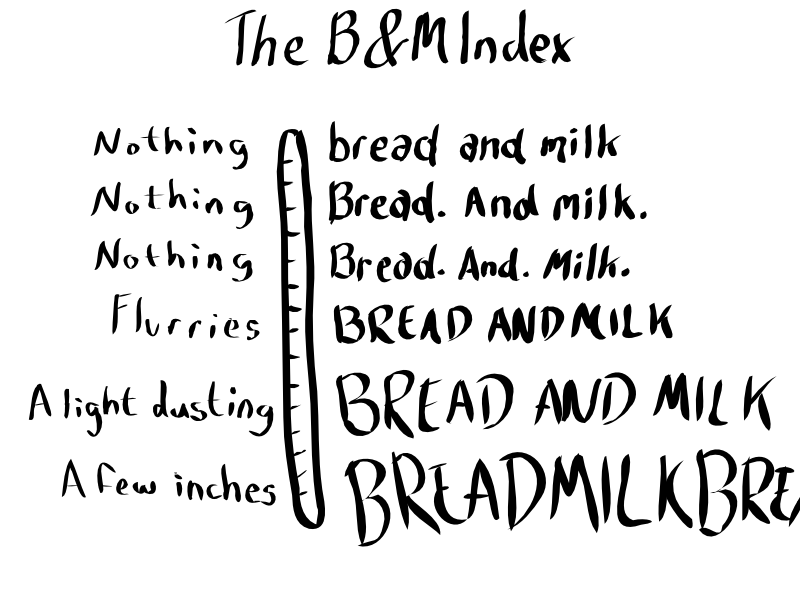 The B&M Index
Nothing bread and milk
Nothing Bread. And milk.
Nothing Bread. And. Milk.
Flurries BREAD AND MILK
A light dusting BREAD AND MILK
A few inches BREADMILKBREA